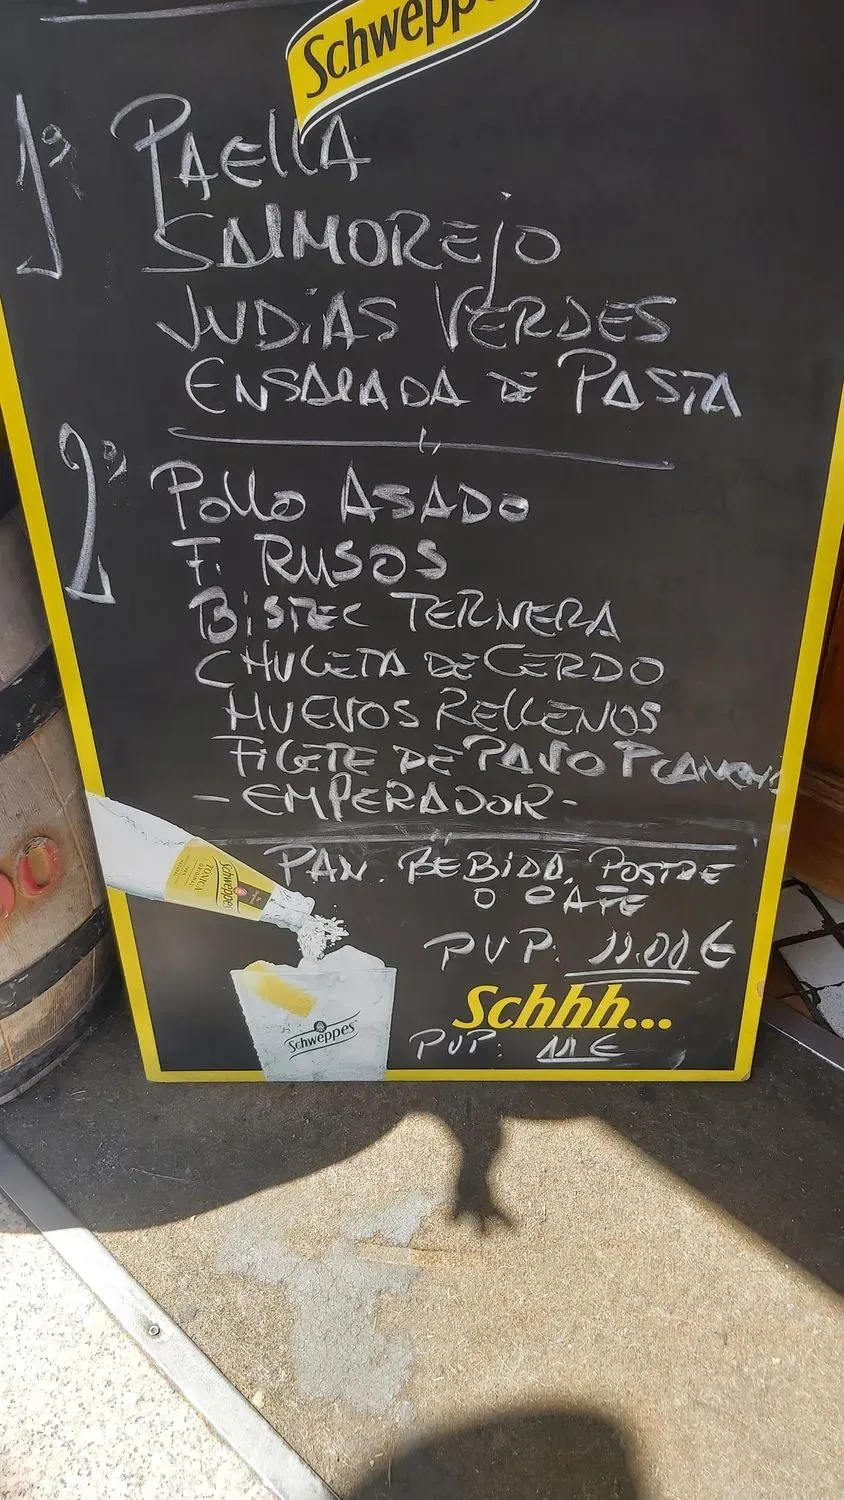 Schweppes
1º PAELLA
SALMOREJO
JUDIAS VERDES
ENSALADA DE PASTA
2º POLLO ASADO
F. RUSOS
BISTEC TERNERA
CHULETA DE CERDO
HUEVOS RELLENOS
FILETE DE PAVO PLANCHA
- EMPERADOR -
PAN. BEBIDA. POSTRE
O CAFE
PVP: 11.00€
Schhh...
PVP: 11€
Schweppes
TONICA
Schweppes